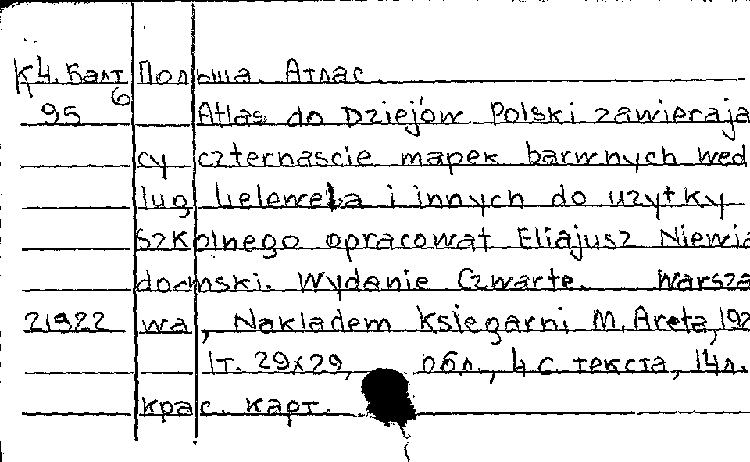 К4. Балт Польша. Атлас.
95 6 Atlas do Dziejów Polski zawieraja
cy czternascie mapek barwnych wed
lug Lelewela i innych do uzytky
szkolnego opracowat Eliajusz Niewia
domski. Wydanie Czwarte. Warsza
21922 wa, Nakladem Ksiegarni M. Areta, 192
1т. 29x29, обл., 4 с. текста, 14л.
крас. карт.